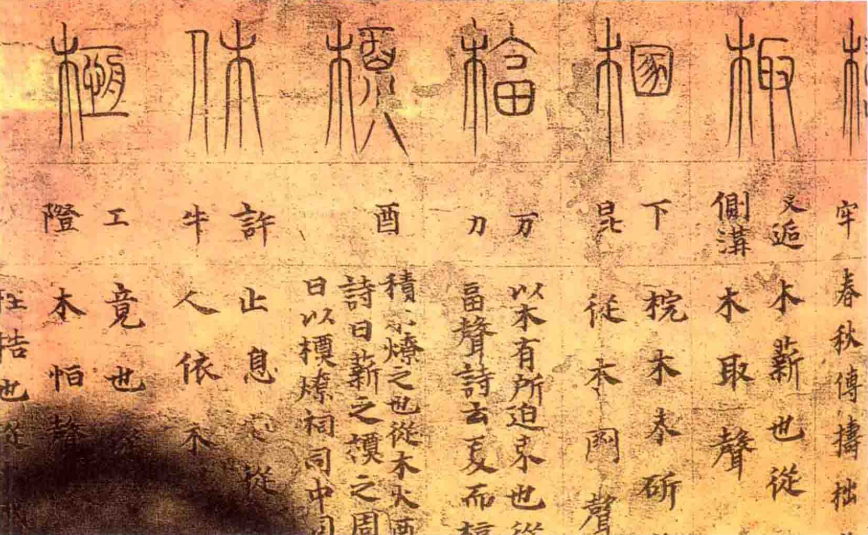 牢春秋傳擣柮
棷
叉逅
側溝
木薪也從
木取聲
梱
下
昆
梡木未斫
從木圂聲
楅
万
力
以木有所迫束也從
畐聲詩云夏而楅
槱
酉
積燎之也從木火酉
詩曰薪之槱之周
日以槱燎祠司中司
休
許
牛
止息從
人依木
㮓
工
隥
竟也
木恒聲
梏也從